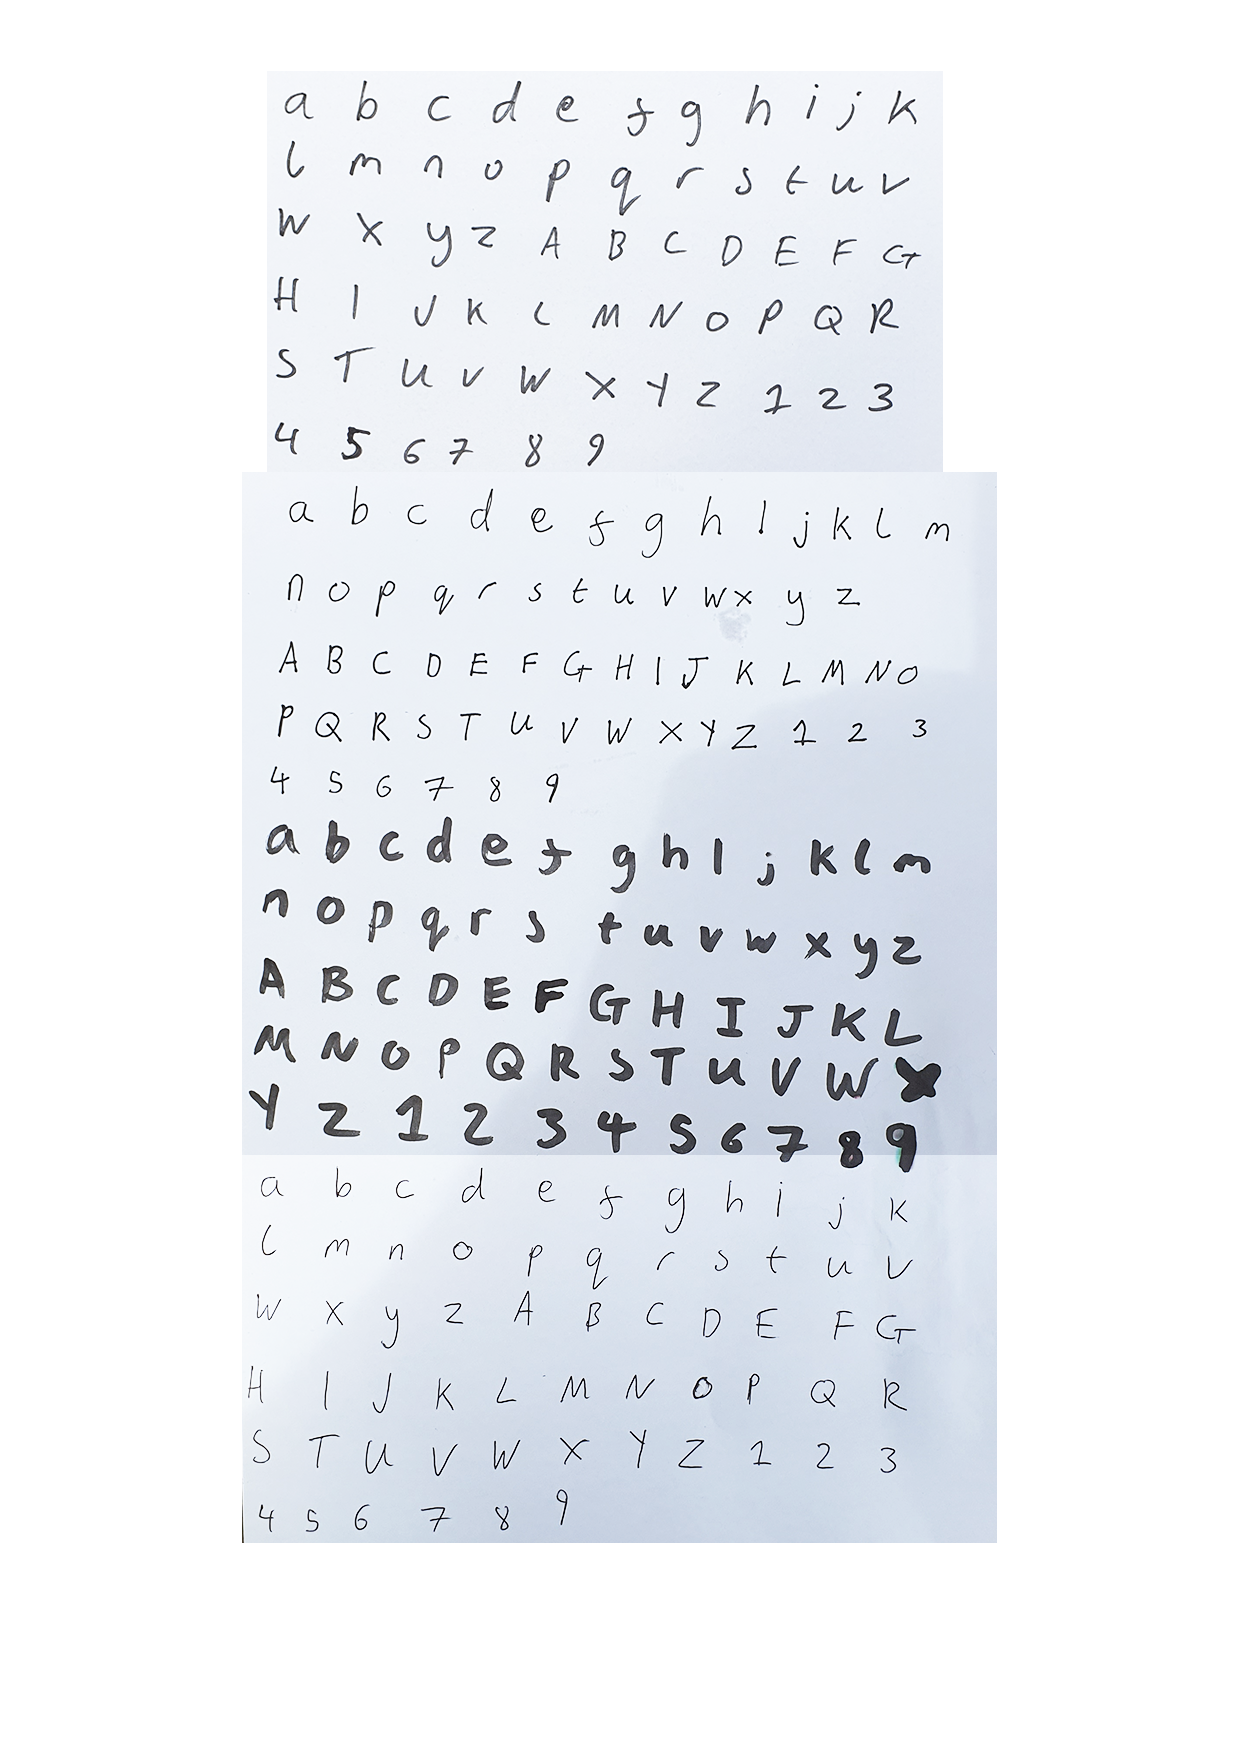 a b c d e f g h i j k
l m n o p q r s t u v
w x y z A B C D E F G
H I J K L M N O P Q R
S T U V W X Y Z 1 2 3
4 5 6 7 8 9
a b c d e f g h i j k l m
n o p q r s t u v w x y z
A B C D E F G H I J K L M N O
P Q R S T U V W X Y Z 1 2 3
4 5 6 7 8 9
a b c d e f g h i j k l m
n o p q r s t u v w x y z
A B C D E F G H I J K L
M N O P Q R S T U V W X
Y Z 1 2 3 4 5 6 7 8 9
a b c d e f g h i j k
l m n o p q r s t u v
w x y z A B C D E F G
H I J K L M N O P Q R
S T U V W X Y Z 1 2 3
4 5 6 7 8 9